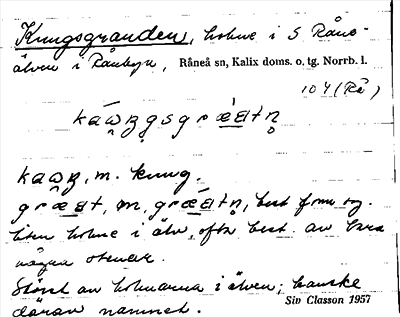 Kungsgranden, holme i S Råne-
älven i Rånbyn, Råneå sn, Kalix doms. o. tg. Norrb. l.
104 (Rå)
káwŋgsgrǽætn̥
kawŋ, m. kung.
græat, m, grǽætn̥, best form sg.
liten holme i älv, ofta best. av bara
några stenar.
Störst av holmarna i älven; kanske
därav namnet. Siv Classon 1957